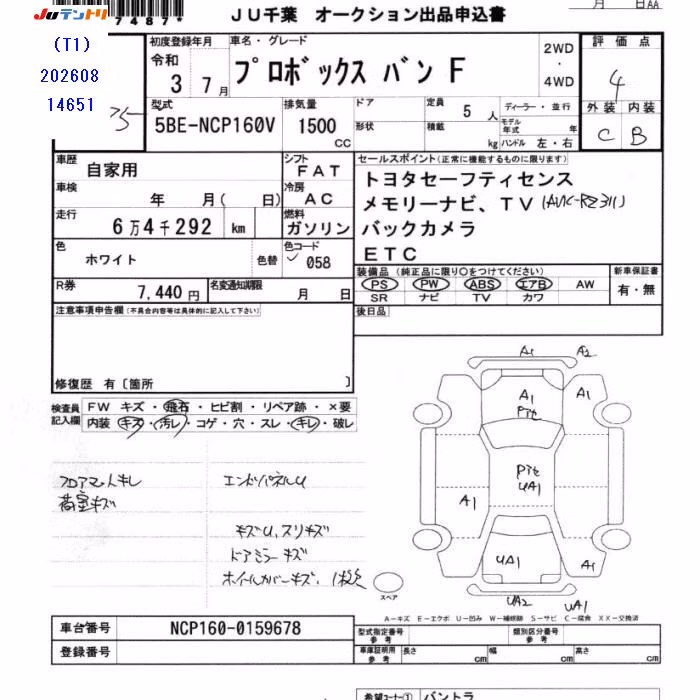 JUテントリ
7487*
JU千葉 オークション出品申込書
月 日AA
(T1)
202608
14651
初度登録年月
令和
3年 7月
車名・グレード
プロボックス バン F
2WD
・
4WD
評価点
4
外装 内装
C B
型式
5BE-NCP160V
排気量
1500 CC
ドア
形状
定員
5人
積載
kg
ディーラー・並行
モデル年式 年
ハンドル 左・右
車歴
自家用
シフト
FAT
車検
年 月( 日)
冷房
AC
走行
6万4千292 km
燃料
ガソリン
色
ホワイト
色替
色コード
058
R券
7,440円
名変通知期限
月 日
セールスポイント(正常に機能するものに限ります)
トヨタセーフティセンス
メモリーナビ、TV (AVIC-RZ311)
バックカメラ
ETC
装備品(純正品に限り○をつけてください)
PS PW ABS エアB AW
SR ナビ TV カワ
新車保証書
有・無
後日品
注意事項申告欄(不具合内容等は具体的に記入して下さい)
修復歴 有〔箇所 〕
検査員
記入欄
FW キズ・飛石・ヒビ割・リペア跡・×要
内装 キズ・汚レ・コゲ・穴・スレ・キレ・破レ
フロアマットキレ
荷室キズ
エンドパネルU
キズU、スリキズ
ドアミラーキズ
ホイールカバーキズ、1枚欠
A1 A2
A1
Pite
A1
Pite
UA1
A1
UA1
A1
UA2
UA1
スペア
A―キズ E―エクボ U―凹み W―補修跡 S―サビ C―腐食 XX―交換済
車台番号
NCP160-0159678
登録番号
型式指定番号
参考
類別区分番号
参考
車庫証明用
参考
長さ cm
幅 cm
高さ cm
希望コーナー①
バントラ